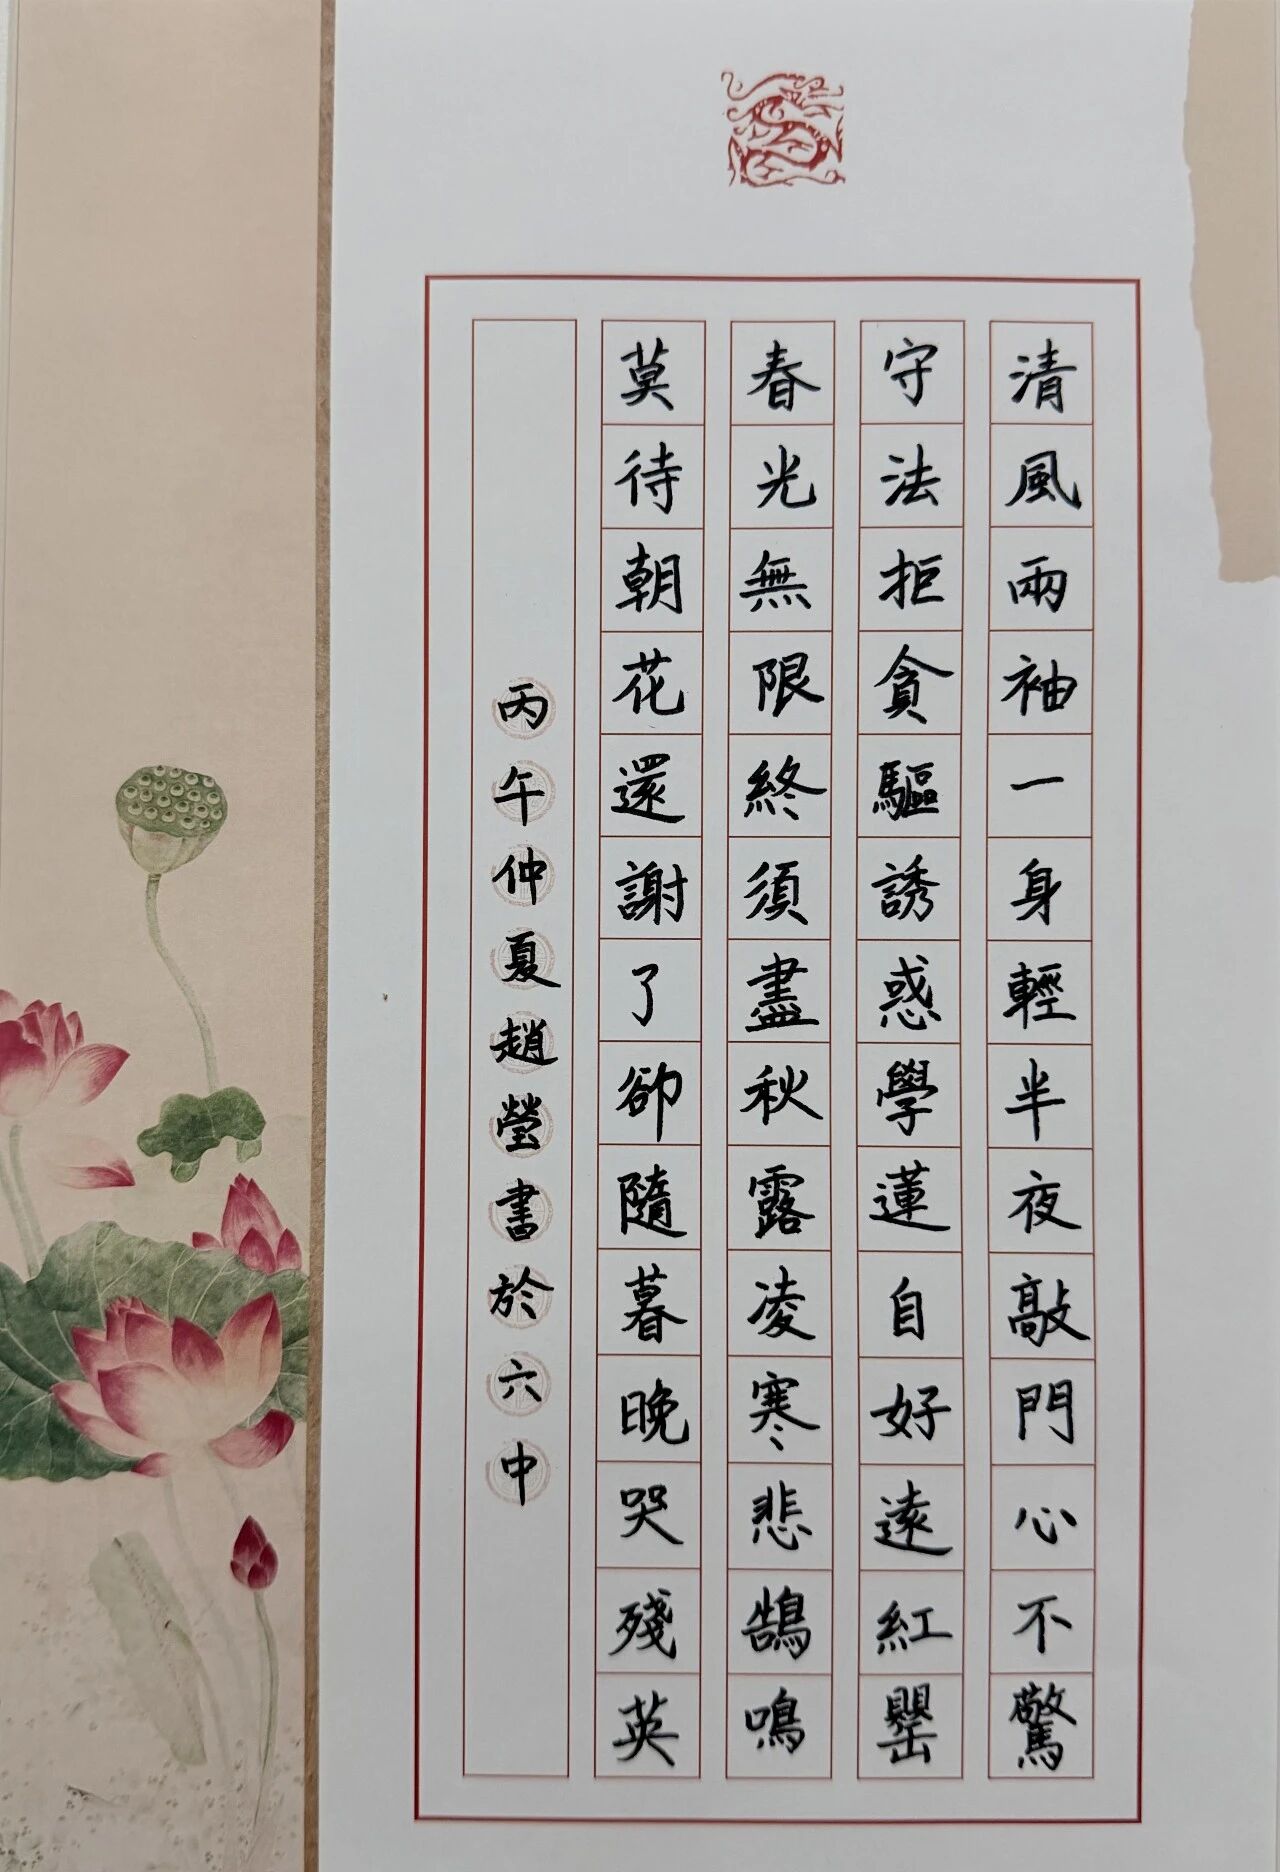 清風兩袖一身輕半夜敲門心不驚
守法拒貪驅誘惑學蓮自好遠紅罌
春光無限終須盡秋露凌寒悲鵠鳴
莫待朝花還謝了卻隨暮晚哭殘英
丙午仲夏趙瑩書於六中